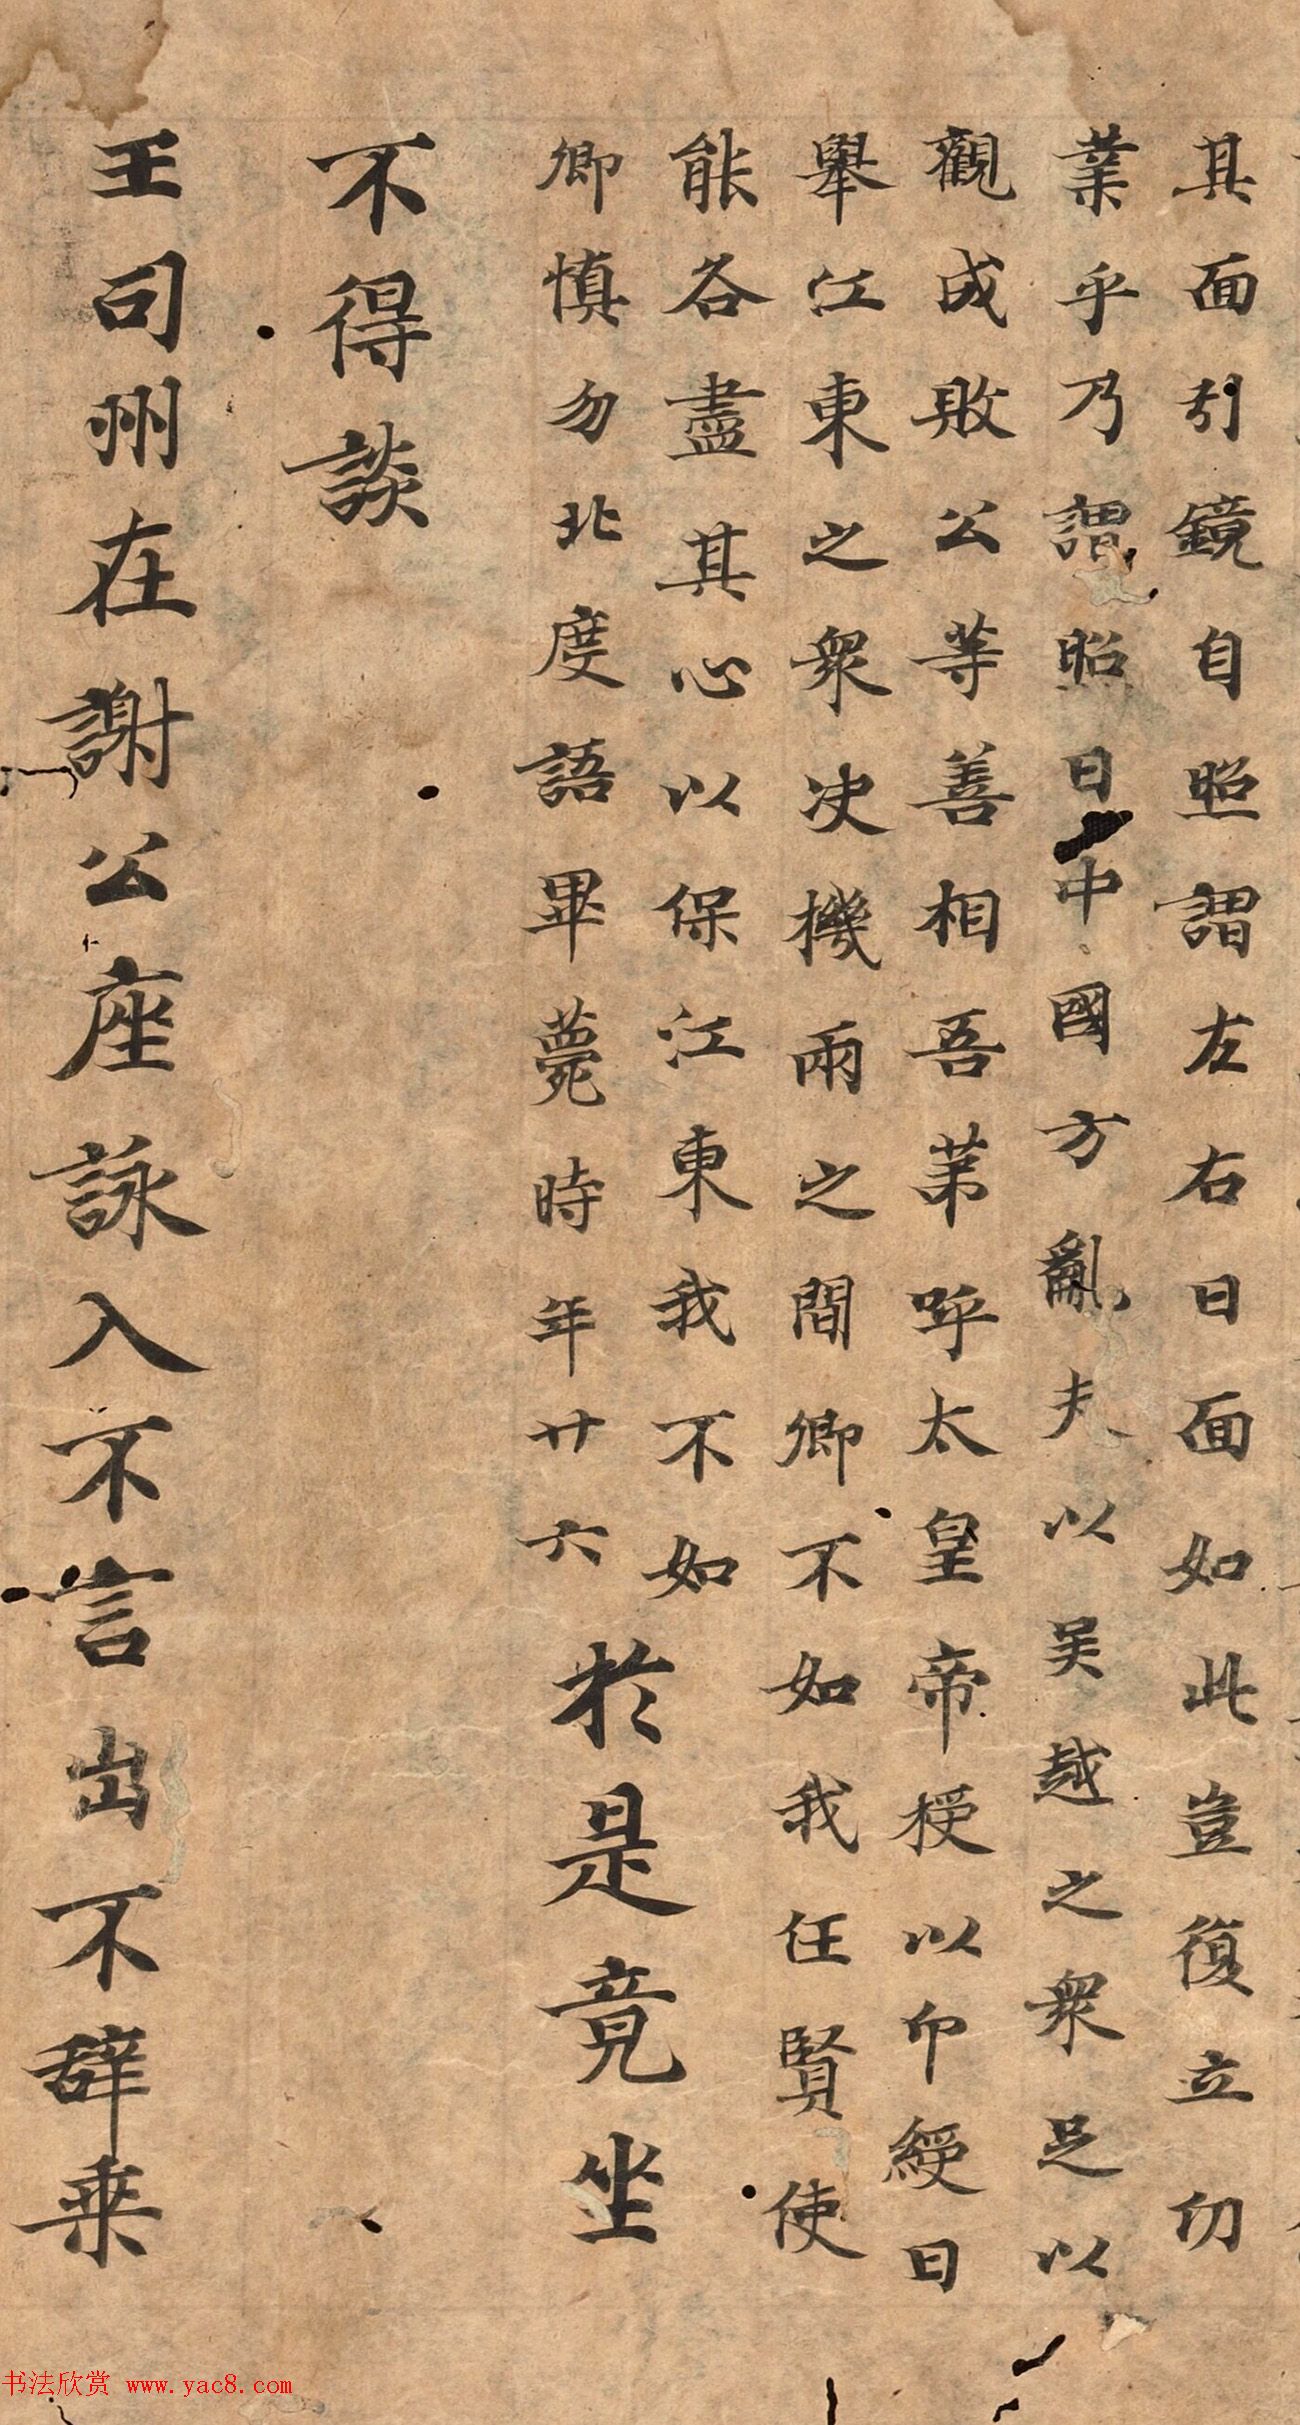 其面引鏡自照謂左右曰面如此豈復立功
業乎乃謂昭曰中國方亂夫以吴越之衆足以
觀成敗公等善相吾苐呼太皇帝授以印綬曰
舉江東之衆决機兩之間卿不如我任賢使
能各盡其心以保江東我不如
卿慎勿北度語畢薨時年廿六於是竟坐
不得談
王司州在謝公座詠入不言出不辞乗
书法欣赏 www.yac8.com